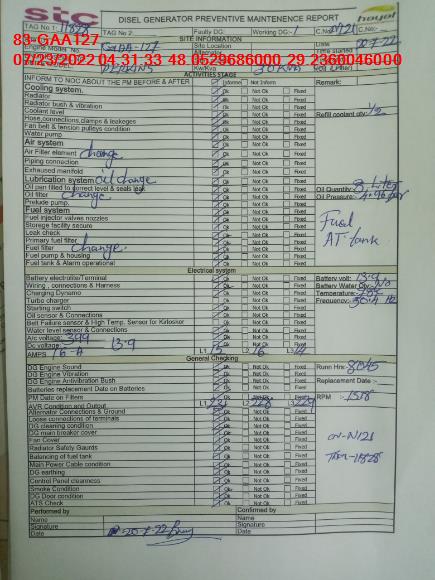 stc DISEL GENERATOR PREVENTIVE MAINTENENCE REPORT hoyal
TAG No 1: 11828 TAG No 2: Faulty DG: Working DG:-1 C.No: C.No:
SITE INFORMATION
83-GAA127
GAA-127 Site Location Date 20-7-22
Engine Model No. Alternator Time started
07/23/2022 04 31 33 48.0529686000 29 2360046000
PERKINS Kw/Kva 30 KVA
ACTIVITIES STAGE
INFORM TO NOC ABOUT THE PM BEFORE & AFTER Informe Not Inform Remark:
Cooling system. Ok Not Ok Fixed
Radiator Ok Not Ok Fixed
Radiator bush & vibration Ok Not Ok Fixed
Coolant level Ok Not Ok Fixed Refill coolant qty
Hose,connections,clamps & leakeges Ok Not Ok Fixed
Fan belt & tension pulleys condition Ok Not Ok Fixed
Water pump Ok Not Ok Fixed
Air system
Air Filter element change Ok Not Ok Fixed
Piping connection Ok Not Ok Fixed
Exhausted manifold Ok Not Ok Fixed
Lubrication system oil change Ok Not Ok Fixed
Oil pan filled to correct level & seals leak Ok Not Ok Fixed Oil Quantity: 8 Liter
Oil filter change Ok Not Ok Fixed Oil Pressure:
Prelude pump. Ok Not Ok Fixed
Fuel system
Fuel injector valves nozzles Ok Not Ok Fixed Fuel
Storage facility secure Ok Not Ok Fixed AT tank
Leak check Ok Not Ok Fixed
Primary fuel filter Ok Not Ok Fixed
Fuel filter change Ok Not Ok Fixed
Fuel pump & housing Ok Not Ok Fixed
Fuel tank & Alarm operational Ok Not Ok Fixed
Electrical system
Battery electrolite/Terminal Ok Not Ok Fixed Battery volt: 13.9
Wiring , connections & Harness Ok Not Ok Fixed Battery Water Qty: No
Charging Dynamo Ok Not Ok Fixed Temperature:
Turbo charger Ok Not Ok Fixed Frequency: Hz
Starting switch Ok Not Ok Fixed
Oil sensor & Connections Ok Not Ok Fixed
Belt Failure sensor & High Temp. Sensor for Kirloskor Ok Not Ok Fixed
Water level sensor & Connections Ok Not Ok Fixed
A/c voltage: 399 Ok Not Ok Fixed
Dc voltage: 13.9 Ok Not Ok Fixed
AMPS 16-A L1 15 L2 16 L3 14
General Checking
DG Engine Sound Ok Not Ok Fixed Runn Hrs:- 8045
DG Engine Vibration Ok Not Ok Fixed
DG Engine Antivibration Bush Ok Not Ok Fixed Replacement Date :-
Batteries replacement Date on Batteries Ok Not Ok Fixed
PM Date on Filters Ok Not Ok Fixed RPM :- 1518
AVR Condition and Output L1 L2 228 L3
Alternator Connections & Ground Ok Not Ok Fixed
Loose connections of terminals Ok Not Ok Fixed
DG cleaning condition Ok Not Ok Fixed
DG main breaker cover Ok Not Ok Fixed cn-N121
Fan Cover Ok Not Ok Fixed
Radiator Safety Gaurds Ok Not Ok Fixed
Balancing of fuel tank Ok Not Ok Fixed 11828
Main Power Cable condition Ok Not Ok Fixed
DG earthing Ok Not Ok Fixed
Control Panel cleanness Ok Not Ok Fixed
Smoke Condition Ok Not Ok Fixed
DG Door condition Ok Not Ok Fixed
ATS Check Ok Not Ok Fixed
Performed by Confirmed by
Name Name
Signature Signature
Date 20-7-22 Date